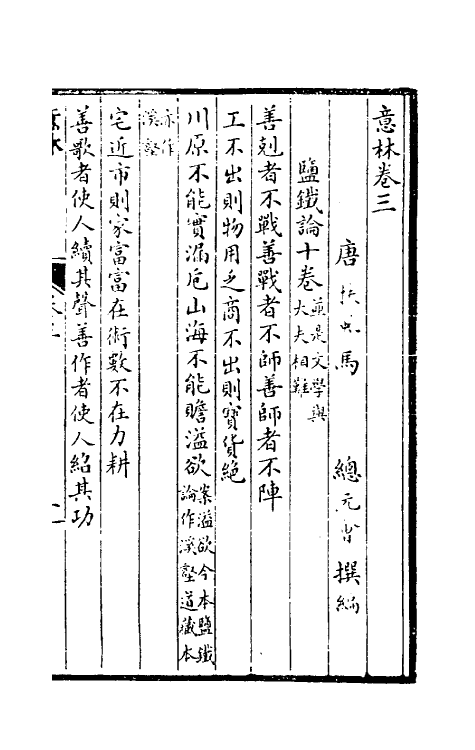 意林卷三
唐 扶風馬 總元㑹 撰編
鹽鐵論十卷 並是文學與
大夫相難
善剋者不戰善戰者不師善師者不陣
工不出則物用乏商不出則寳貨絶
川原不能實漏巵山海不能贍溢欲 案溢欲今本鹽鐵
論作溪壑道藏本
亦作
溪壑
宅近市則家富富在術數不在力耕
善歌者使人續其聲善作者使人紹其功